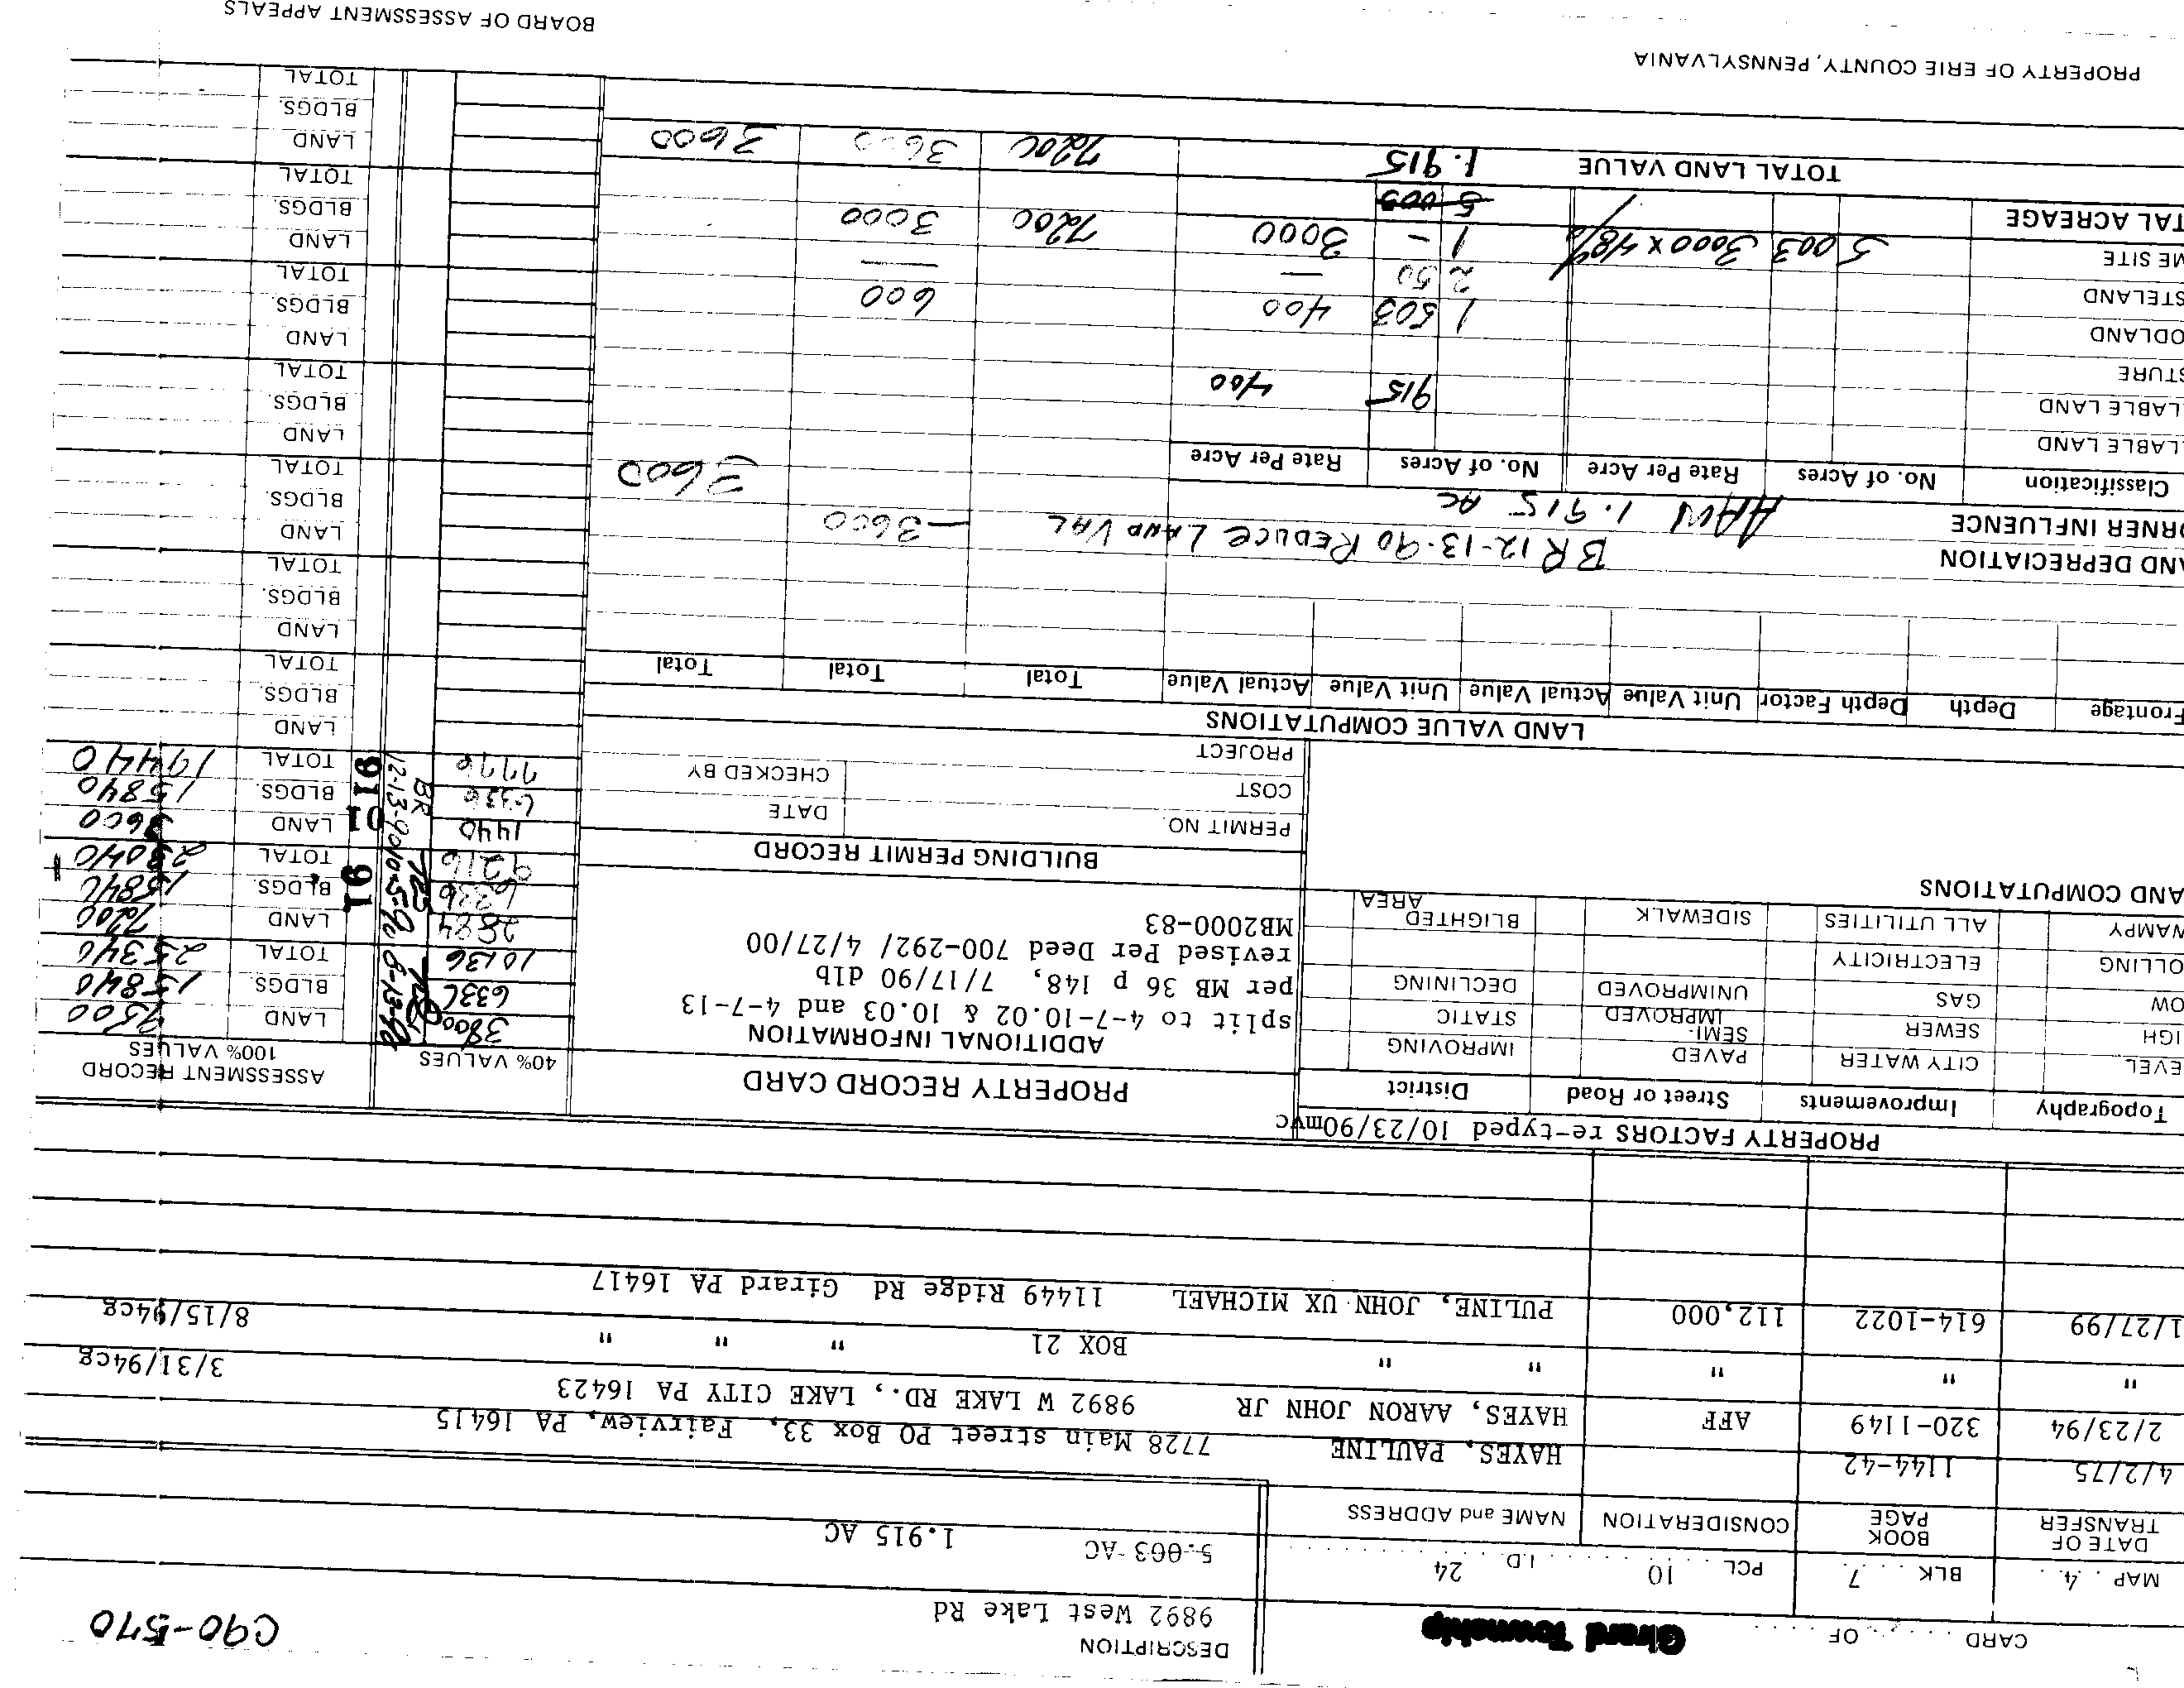 CARD . . . . . . OF . . . . . Girard Township
DESCRIPTION
9892 West Lake Rd
C90-570
MAP . 4. . BLK . . . 7. PCL . . . . 10 . . . . . . I.D. . . 24 . . . . . .
5.003 AC 1.915 AC
DATE OF TRANSFER BOOK PAGE CONSIDERATION NAME and ADDRESS
4/2/75 1144-42 HAYES, PAULINE 7728 Main street PO Box 33, Fairview, PA 16415
2/23/94 320-1149 AFF HAYES, AARON JOHN JR 9892 W LAKE RD., LAKE CITY PA 16423 3/31/94cg
" " " " " BOX 21 " " " 8/15/94cg
1/27/99 614-1022 112,000 PULINE, JOHN UX MICHAEL 11449 Ridge Rd Girard PA 16417
PROPERTY FACTORS re-typed 10/23/90mvc
Topography Improvements Street or Road District
EVEL CITY WATER PAVED IMPROVING
IGH SEWER SEMI-IMPROVED STATIC
OW GAS UNIMPROVED DECLINING
OLLING ELECTRICITY
WAMPY ALL UTILITIES SIDEWALK BLIGHTED AREA
AND COMPUTATIONS
PROPERTY RECORD CARD
ADDITIONAL INFORMATION
split to 4-7-10.02 & 10.03 and 4-7-13
per MB 36 p 148, 7/17/90 dlb
revised Per Deed 700-292/ 4/27/00
MB2000-83
BUILDING PERMIT RECORD
PERMIT NO. DATE
COST
PROJECT CHECKED BY
40% VALUES
ASSESSMENT RECORD
100% VALUES
3800 LAND 9500
6336 8-13-90 BLDGS. 15840
10136 TOTAL 25340
2884 LAND 7200
6336 10-5-90 91 BLDGS. 15840
9216 TOTAL 23040
1440 01 LAND 3600
6336 BR 12-13-90 BLDGS. 15840
7776 91 TOTAL 19440
LAND
BLDGS.
TOTAL
LAND
BLDGS.
TOTAL
LAND
BLDGS.
TOTAL
LAND
BLDGS.
TOTAL
LAND
BLDGS.
TOTAL
LAND
BLDGS.
TOTAL
LAND
BLDGS.
TOTAL
LAND VALUE COMPUTATIONS
Frontage Depth Depth Factor Unit Value Actual Value Unit Value Actual Value Total Total Total
AND DEPRECIATION BR 12-13-90 REDUCE LAND VAL -3600
ORNER INFLUENCE AAW 1.915 AC 3600
Classification No. of Acres Rate Per Acre No. of Acres Rate Per Acre
LLABLE LAND
LLABLE LAND 915 400
STURE
ODLAND 1 503 400 600
STELAND 2 50 — —
ME SITE 5 003 3000 x 48% 1 - 3000 7200 3000
TAL ACREAGE 5 003
TOTAL LAND VALUE 1.915 7200 3600 3600
PROPERTY OF ERIE COUNTY, PENNSYLVANIA
BOARD OF ASSESSMENT APPEALS